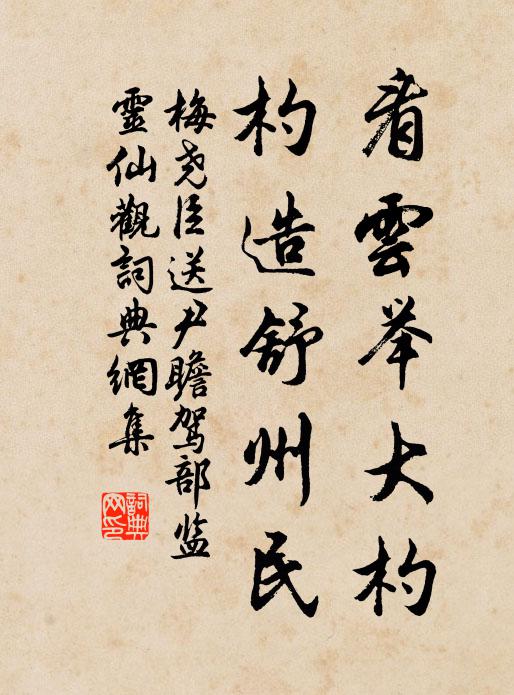 看雲举大杓
杓造舒州民
梅尧臣送尹瞻駕部监
靈仙觀詞典網集
詞典网印